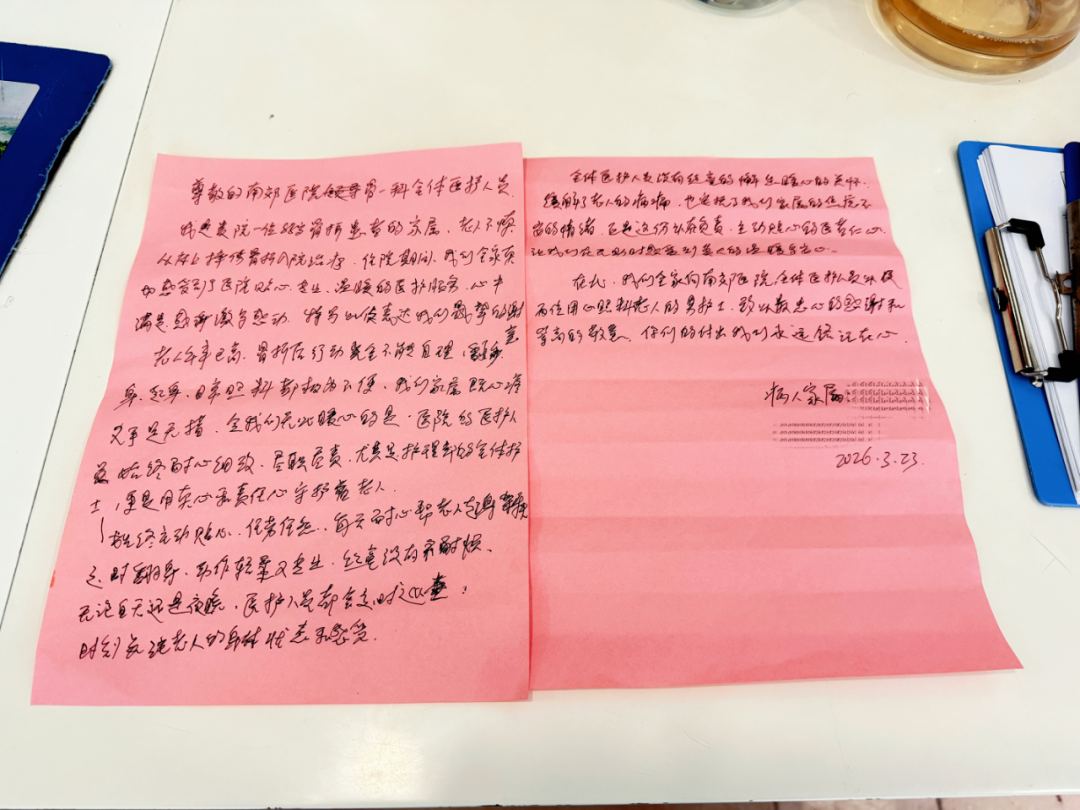 尊敬的南郊医院骨一科全体医护人员
我是贵院一位骨折患者的家属，老人不慎
从床上摔伤骨折入院治疗，住院期间，我们全家真
切感受到了医院贴心、专业、温暖的医护服务，心中
满是感谢激与感动，特写此信表达我们最挚的谢意
老人年事已高，骨折后行动完全不能自理，翻身
起身、日常照料都极为不便，我们家属既心疼
又更是无措，令我们无比暖心的是，医院的医护人
员始终耐心细致、尽职尽责，尤其是护理部的全体护
士，更是用真心和责任心守护着老人.
始终主动贴心、任劳任怨，每天耐心帮老人起身
定时翻身，动作轻柔又专业，丝毫没有不耐烦、
无论白天还是夜晚，医护人员都会定时巡查，
时刻关注老人的身体状态和感觉.
全体医护人员没有丝毫的懈怠暖心的关怀，
缓解了老人的病痛，也安抚了我们家属的焦虑不
安的情绪，正是这份认真负责、主动贴心的医者仁心
让我们在无助时感受到家人的温暖与安心.
在此，我们全家向南郊医院全体医护人员以及
每位用心照料老人的男护士，致以最忠心的感谢和
崇高的敬意，你们的付出我们永远铭记在心.
病人家属:
2026.3.23.